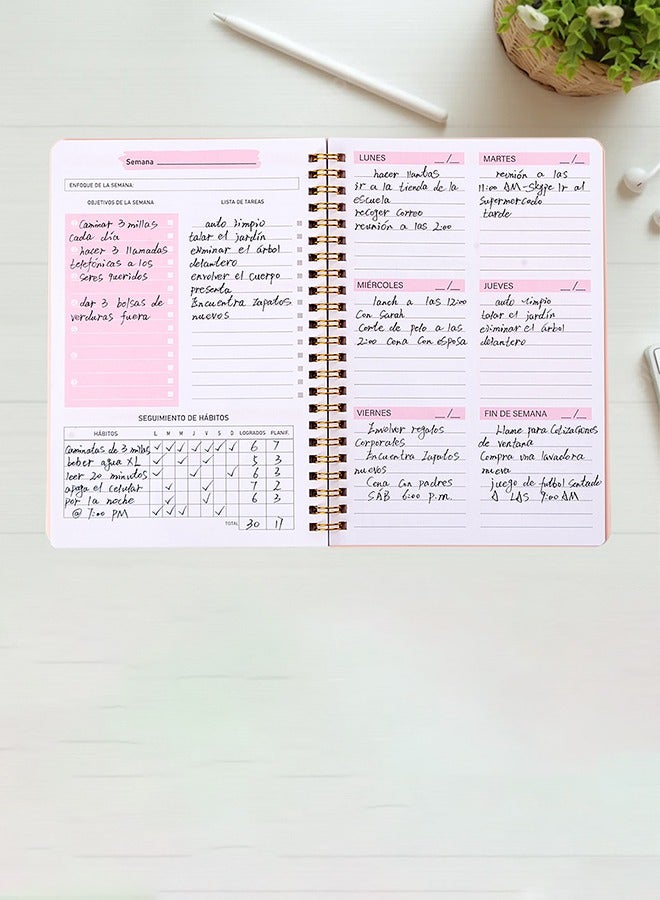 Semana
ENFOQUE DE LA SEMANA:
OBJETIVOS DE LA SEMANA
Caminar 3 millas
cada día
hacer 3 llamadas
telefónicas a los
seres queridos
dar 3 bolsas de
verduras fuera
LISTA DE TAREAS
auto limpio
talar el jardín
eliminar el árbol
delantero
envolver el cuerpo
presenta
Encuentra Zapatos
nuevos
SEGUIMIENTO DE HÁBITOS
HÁBITOS L M M J V S D LOGRADOS PLANIF.
Caminatas de 3 millas ✓ ✓ ✓ ✓ ✓ ✓ ✓ 6 7
beber agua XL ✓ ✓ ✓ 5 3
leer 20 minutos ✓ ✓ ✓ 6 3
apaga el celular ✓ ✓ 7 2
por la noche ✓ ✓ 6 3
@ 7:00 PM ✓ ✓ ✓ ✓
TOTAL 30 17
LUNES __/__
hacer llantas
ir a la tienda de la
escuela
recoger correo
reunión a las 2:00
MARTES __/__
reunión a las
11:00 AM-Skype Ir al
supermercado
tarde
MIÉRCOLES __/__
lanch a las 12:00
Con Sarah
Corte de pelo a las
2:00 Cena Con esposa
JUEVES __/__
auto limpio
talar el jardín
eliminar el árbol
delantero
VIERNES __/__
Envolver regalos
Corporales
Encuentra Zapatos
nuevos
Cena Con padres
SAB 6:00 p.m.
FIN DE SEMANA __/__
Llame para Cotizaciones
de ventana
Compra una lavadora
nueva
juego de futbol sentado
A LAS 9:00 AM